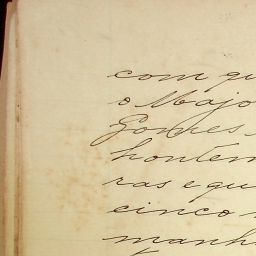 com qu
o Majo
Gomes
hontem
ras e qu
cinco
manh